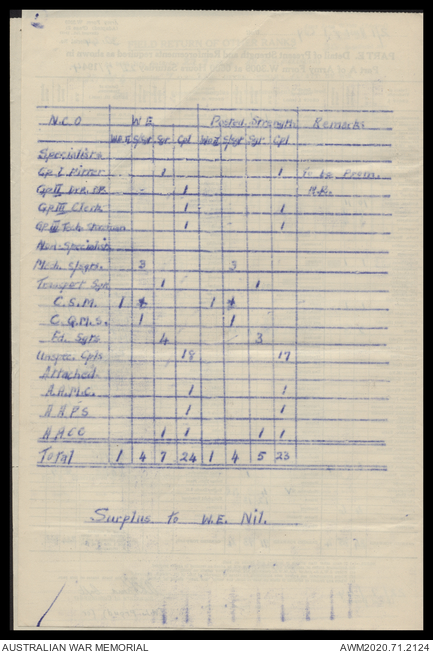 N.C.O W.E. Posted Strength Remarks
WO II S/Sgt Sgt Cpl WO II S/Sgt Sgt Cpl
Specialists
Gp I Fitter 1 1 To be Prom.
Gp II 1
Gp III Clerk 1 1
Gp III Tech. 1 1
Non-Specialists
Mech. S/Sgts. 3 3
Transport Sgt 1 1
C.S.M. 1 1
C.Q.M.S. 1 1
Sgts 4 3
Unspec. Cpls 18 17
Attached
A.A.M.C. 1 1
A.A.P.S 1 1
A.A.C.C 1 1 1 1
Total 1 4 7 24 1 4 5 23
Surplus to W.E. Nil.
AUSTRALIAN WAR MEMORIAL AWM2020.71.2124